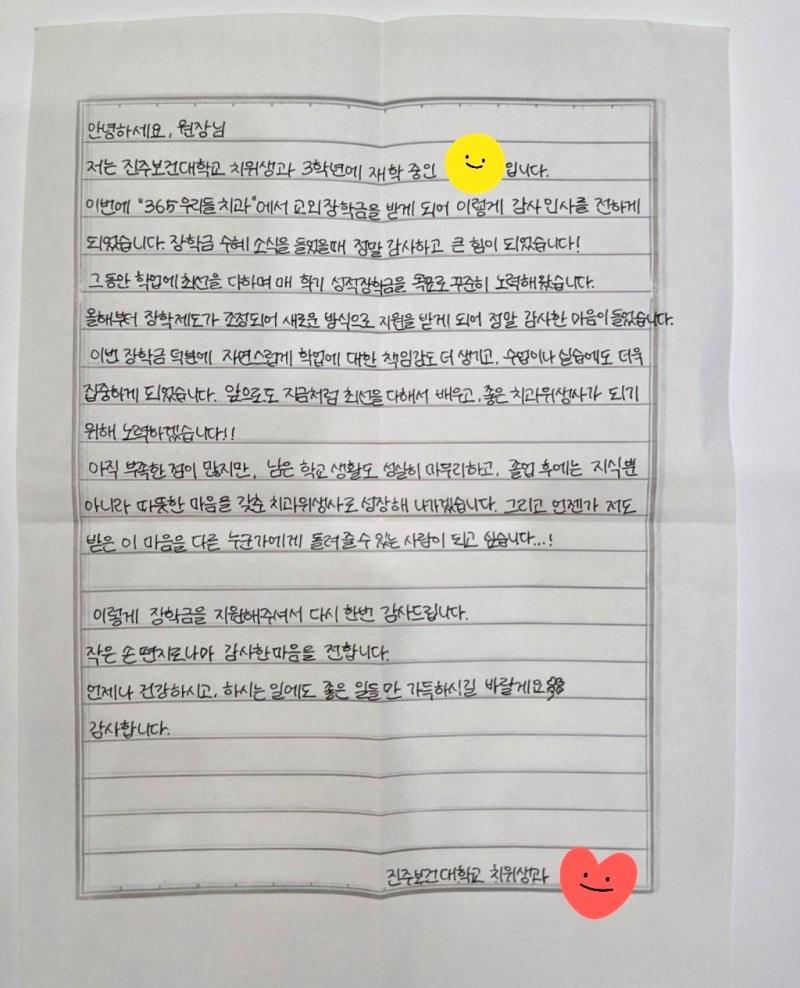 안녕하세요, 원장님
저는 진주보건대학교 치위생과 3학년에 재학 중인 입니다.
이번에 "365우리들치과"에서 교외장학금을 받게 되어 이렇게 감사인사를 전하게
되었습니다. 장학금 수혜 소식을 들었을때 정말 감사하고 큰 힘이 되었습니다!
그동안 학업에 최선을 다하며 매 학기 성적장학금을 목표로 꾸준히 노력해왔습니다.
올해부터 장학제도가 조정되어 새로운 방식으로 지원을 받게 되어 정말 감사한 마음이 들었습니다.
이번 장학금 덕분에 자연스럽게 학업에 대한 책임감도 더 생기고, 수업이나 실습에도 더욱
집중하게 되었습니다. 앞으로도 지금처럼 최선을 다해서 배우고, 좋은 치과위생사가 되기
위해 노력하겠습니다!!
아직 부족한 점이 많지만, 남은 학교 생활도 성실히 마무리하고, 졸업 후에는 지식뿐
아니라 따뜻한 마음을 갖춘 치과위생사로 성장해 나가겠습니다. 그리고 언젠가 저도
받은 이 마음을 다른 누군가에게 돌려줄 수 있는 사람이 되고 싶습니다...!
이렇게 장학금을 지원해주셔서 다시 한번 감사드립니다.
작은 손 편지로나마 감사한 마음을 전합니다.
언제나 건강하시고, 하시는 일에도 좋은 일들만 가득하시길 바랄게요
감사합니다.
진주보건대학교 치위생과